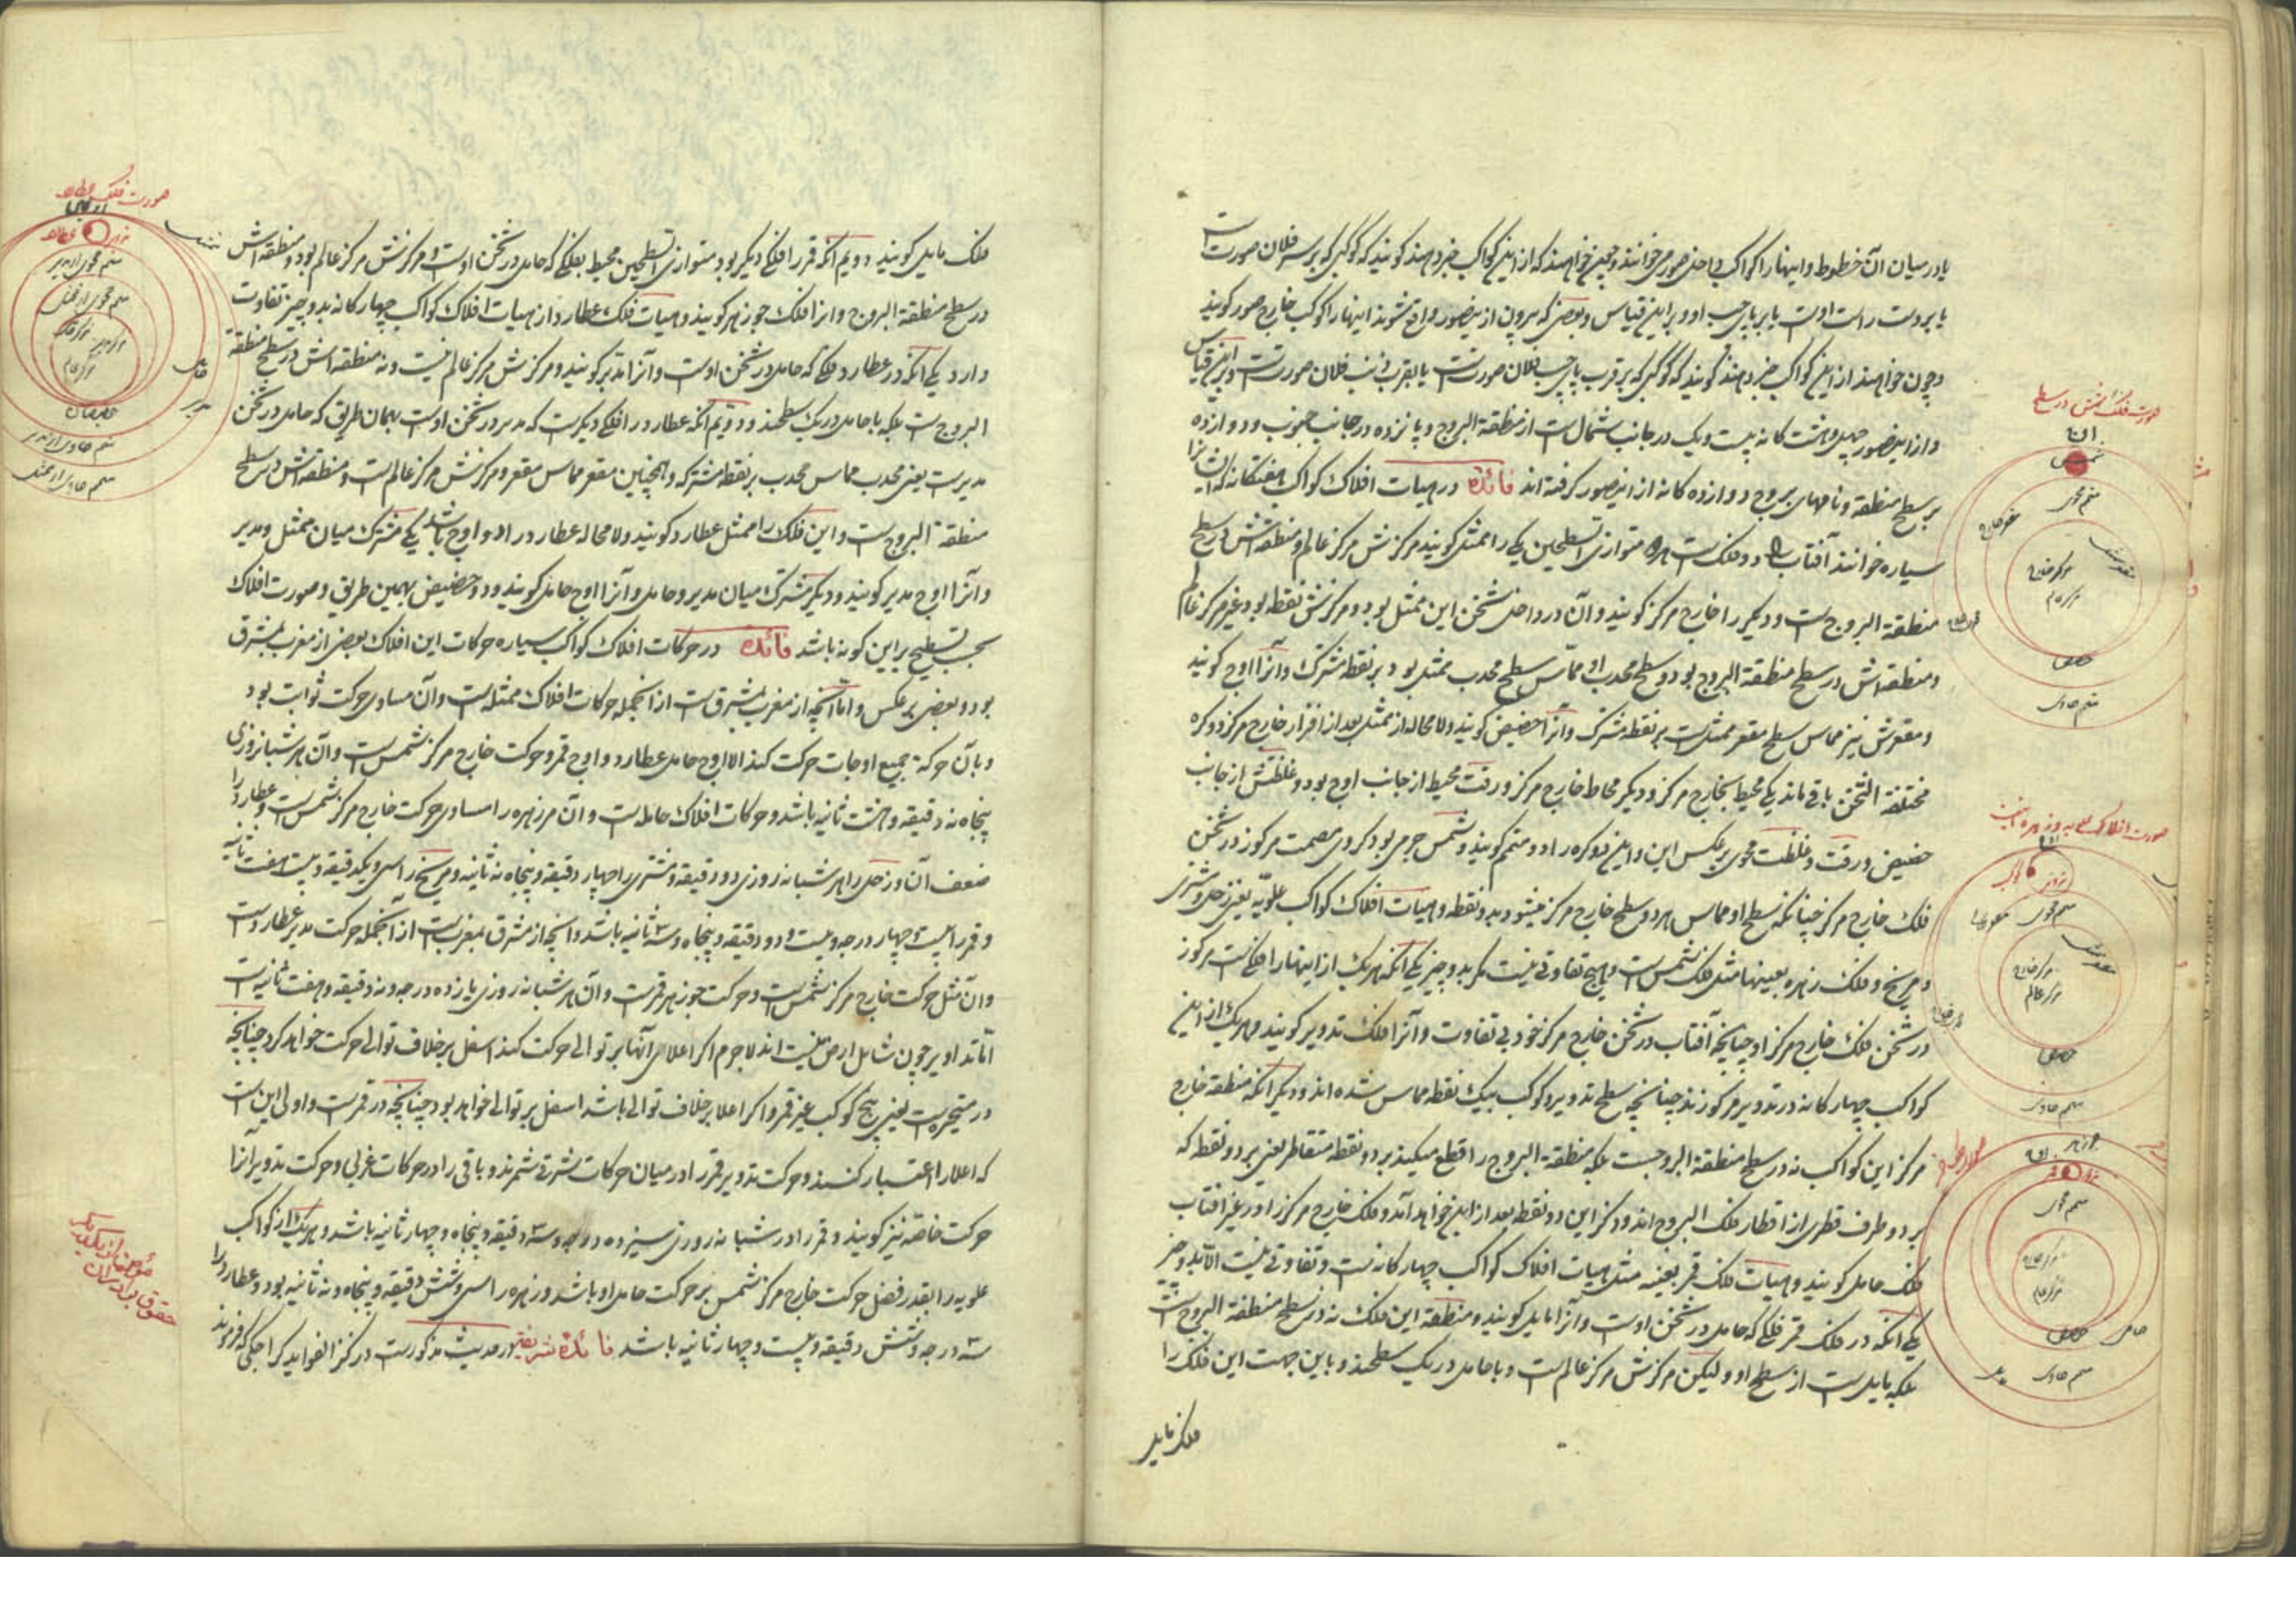 یا در میان آن خطوط و اینها را کواکب داخل صور می‌خوانند و چون خواهند که ازین کواکب خبر دهند گویند که کوکبی که بر سر فلان صورت است
یا بر دست راست اوست یا بر پای چپ او و برین قیاس و بعضی که بیرون ازین صور واقع شوند اینها را کواکب خارج صور گویند
و چون خواهند از این کواکب خبر دهند گویند که کوکبی که بر قرب پای چپ فلان صورتست یا بقرب ذنب فلان صورتست و برین قیاس
و از این صور چهل و هشت کانه بیست و یک در جانب شمال است از منطقة البروج و پانزده در جانب جنوب و دوازده
بر سطح منطقه و نامهای بروج دوازده کانه از این صور گرفته‌اند فائده در هیات افلاک کواکب هفتکانه که ایشانرا
سیاره خوانند آفتاب را دو فلک است هر دو متوازی السطحین یکی را ممثل گویند مرکزش مرکز عالم و منطقه‌اش در سطح
منطقة البروج است و دیگر را خارج مرکز گویند و آن در داخل ثخن این ممثل بود و مرکزش نقطه بود غیر مرکز عالم
و منطقه‌اش در سطح منطقة البروج بود و سطح محدب او مماس سطح محدب ممثل بود بر نقطه مشترک و آنرا اوج گویند
و مقعرش نیز مماس سطح مقعر ممثل است بر نقطه مشترک و آنرا حضیض گویند و لامحاله از ممثل بعد از افراز خارج مرکز دو کره
مختلفة الثخن باقی ماند یکی محیط بخارج مرکز و دیگر محاط خارج مرکز و رقت محیط از جانب اوج بود و غلظتش از جانب
حضیض و رقت و غلظت محوی بر عکس این و این دو کره را دو متمم گویند و شمس جرمی بود کروی مصمت مرکوز در ثخن
فلک خارج مرکز چنانکه سطح او مماس هر دو سطح خارج مرکز میشود بدو نقطه و هیات افلاک کواکب علویه یعنی زحل و مشتری
و مریخ و فلک زهره بعینها مثل فلک شمس است و هیچ تفاوتی نیست مگر بدو چیز یکی آنکه هر یک از اینها را فلکیست مرکوز
در ثخن فلک خارج مرکز او چنانچه آفتاب در ثخن خارج مرکز خود بی تفاوت و آنرا فلک تدویر گویند و هر یک از این
کواکب چهار کانه در تدویر مرکوزند چنانچه سطح تدویر و کوکب بیک نقطه مماس شده‌اند و دیگر آنکه منطقه خارج
مرکز این کواکب نه در سطح منطقة البروجست بلکه منطقة البروج را قطع میکند بر دو نقطه متقاطر یعنی بر دو نقطه که
بر دو طرف قطری از اقطار فلک البروج‌اند و ذکر این دو نقطه بعد از این خواهد آمد و فلک خارج مرکز را در غیر آفتاب
فلک حامل گویند و هیات فلک قمر بعینه مثل هیات افلاک کواکب چهار کانه است و تفاوتی نیست الا بدو چیز
یکی آنکه در فلک قمر فلکی که حامل در ثخن اوست و آنرا مایل گویند و منطقه این فلک نه در سطح منطقة البروج است
بلکه مایل است از سطح او ولیکن مرکزش مرکز عالم است و با حامل در یک سطحند و باین جهت این فلک را
فلک مایل
صورت فلک شمس در سطح
اوج
شمس
متمم محوی
مرکز خارج
مرکز عالم
حضیض
متمم حاوی
صورت افلاک علویه و زهره اینست
اوج
تدویر
کوکب
متمم محوی
مرکز خارج
مرکز عالم
حضیض
متمم حاوی
جوزهر
اوج
تدویر
قمر
متمم محوی
مرکز خارج
مرکز عالم
حضیض
حامل
متمم حاوی
مایل
فلک مایل گویند دویم آنکه قمر را فلکی دیگر بود متوازی السطحین محیط بفلکی که حامل در ثخن اوست و مرکزش مرکز عالم بود و منطقه‌اش
در سطح منطقة البروج و آنرا فلک جوزهر گویند و هیات فلک عطارد از هیات افلاک کواکب چهار کانه بدو چیز تفاوت
دارد یکی آنکه در عطارد فلکی که حامل در ثخن اوست و آنرا مدیر گویند و مرکزش مرکز عالم نیست و نه منطقه‌اش در سطح منطقة
البروج است بلکه با حامل در یک سطحند و دویم آنکه عطارد را فلکی دیگرست که مدیر در ثخن اوست بهمان طریق که حامل در ثخن
مدیرست یعنی محدب مماس محدب بر نقطه مشترکه و همچنین مقعر مماس مقعر و مرکزش مرکز عالم است و منطقه‌اش در سطح
منطقة البروج است و این فلک را ممثل عطارد گویند و لامحاله عطارد را دو اوج باشد یکی مشترک میان ممثل و مدیر
و آنرا اوج مدیر گویند و دیگر مشترک میان مدیر و حامل و آنرا اوج حامل گویند و دو حضیض بهمین طریق و صورت افلاک
بحسب تسطیح بر این گونه باشد فائده در حرکات افلاک کواکب سیاره حرکات این افلاک بعضی از مغرب بمشرق
بود و بعضی بر عکس و اما آنچه از مغرب بمشرق است از آنجمله حرکات افلاک ممثله است و آن مساوی حرکت ثوابت بود
و بآن حرکة جمیع اوجات حرکت کند الا اوج حامل عطارد و اوج قمر و حرکت خارج مرکز شمس است و آن هر شبانروزی
پنجاه نه دقیقه و هشت ثانیه باشد و حرکات افلاک حامله است و آن مر زهره را مساوی حرکت خارج مرکز شمس است و عطارد را
ضعف آن و زحل را هر شبانه روزی دو دقیقه و مشتری را چهار دقیقه و پنجاه نه ثانیه و مریخ را سی و یکدقیقه و بیست هفت ثانیه
و قمر را بیست چهار درجه و بیست و دو دقیقه و پنجاه و سه ثانیه باشد و آنچه از مشرق بمغرب است از آنجمله حرکت مدیر عطارد است
و آن مثل حرکت خارج مرکز شمس است و حرکت جوزهر قمرست و آن هر شبانه روزی یازده درجه و نه دقیقه و هفت ثانیه است
اما تداویر چون شامل ارض نیستند لاجرم اگر اعلای آنها بر توالی حرکت کند اسفل بر خلاف توالی حرکت خواهد کرد چنانچه
در متحیره است یعنی پنج کوکب غیر قمر و اگر اعلا بر خلاف توالی باشد اسفل بر توالی خواهد بود چنانچه در قمرست و اولی این است
که اعلا را اعتبار کنند و حرکت تدویر قمر را در میان حرکات شرقی شمرند و باقی را در حرکات غربی و حرکت تدویر آنرا
حرکت خاصه نیز گویند و قمر را در شبانه روزی سیزده درجه و سه دقیقه و پنجاه و چهار ثانیه باشد و هر یک از کواکب
علویه را بقدر فضل حرکت خارج مرکز شمس بر حرکت حامل او باشد و زهره را سی و شش دقیقه و پنجاه و نه ثانیه بود و عطارد را
سه درجه و شش دقیقه و بیست و چهار ثانیه باشد فائده شریفه در حدیث مذکورست در کنز الفواید کراجکی که فرمودند
صورت فلک عطارد
تدویر
عطارد
متمم محوی از مدیر
متمم محوی از ممثل
مرکز عالم
حضیضان
متمم حاوی از مدیر
متمم حاوی از ممثل
ممثل
حامل
مدیر
حقوق برادران